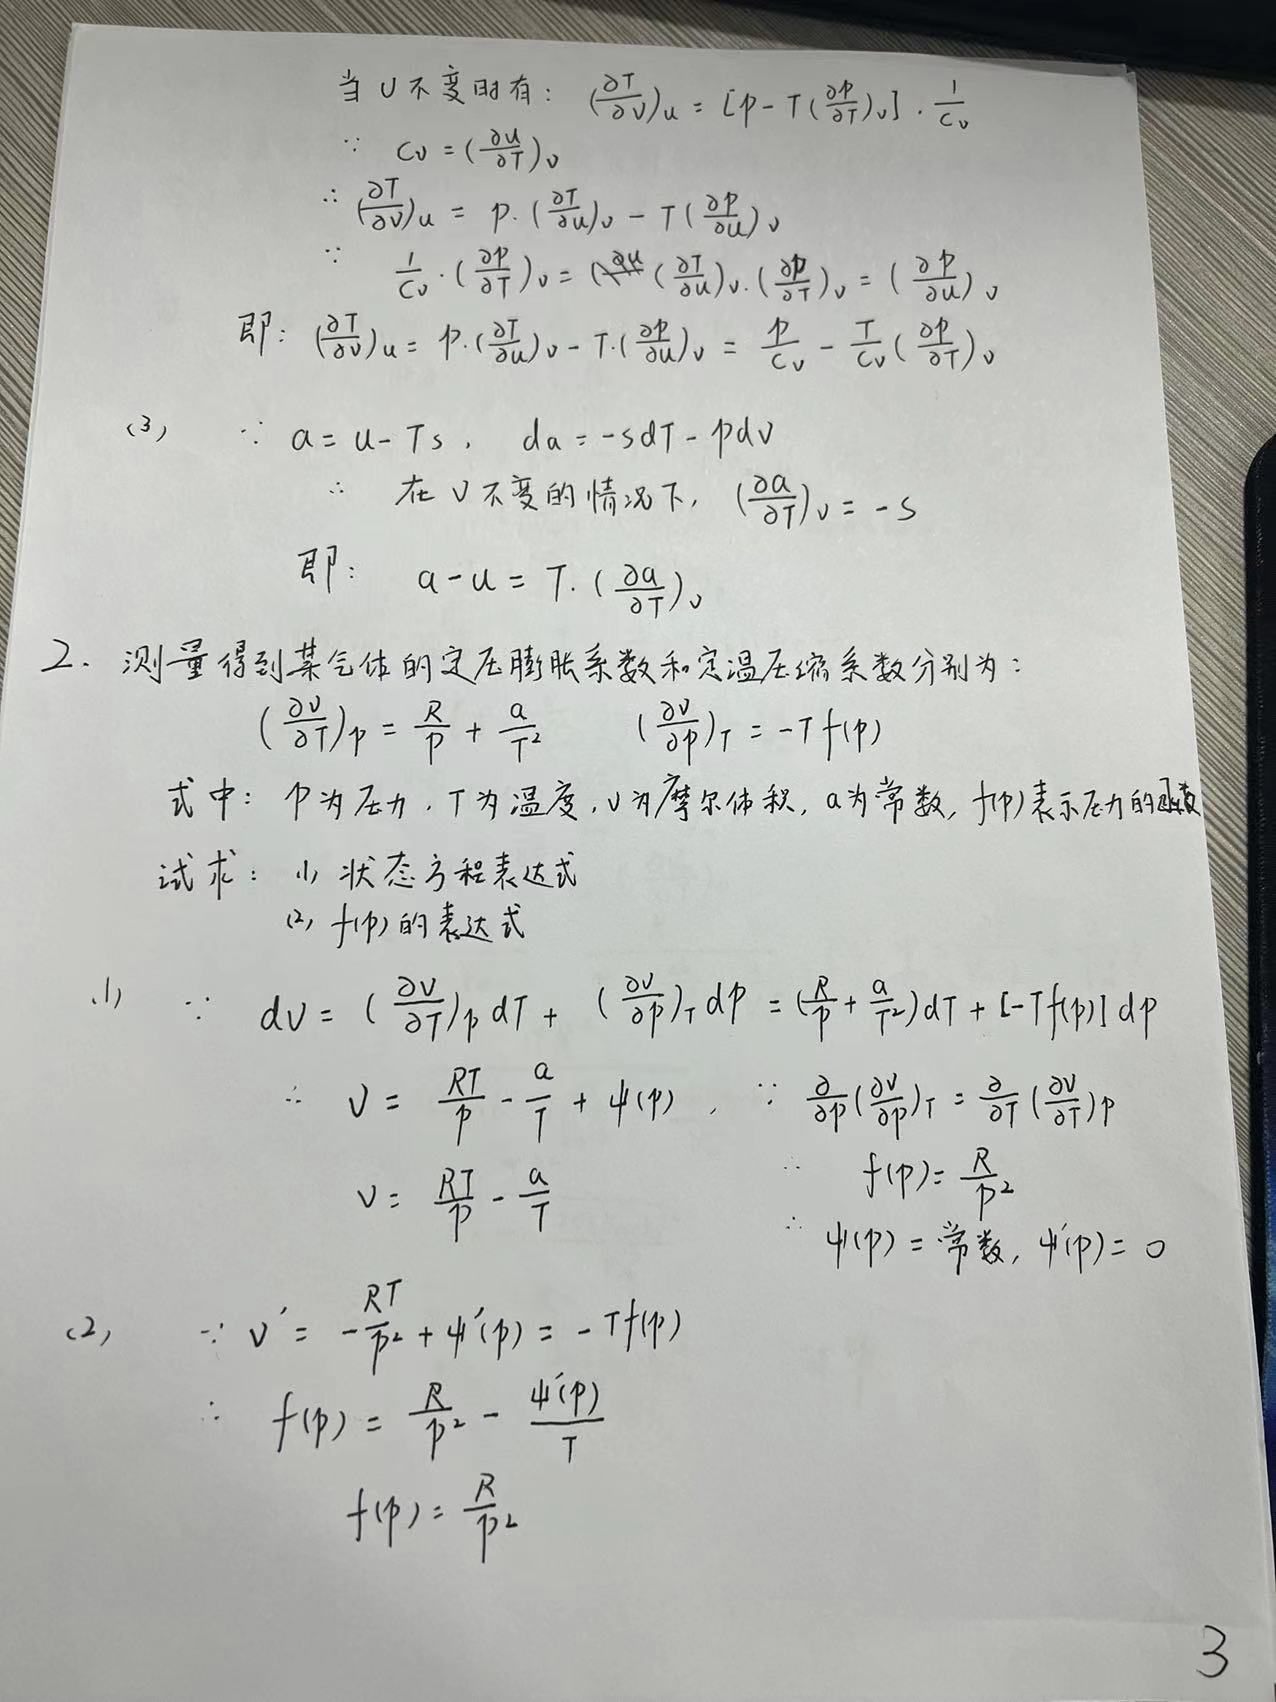 当 u 不变时有： (∂T/∂v)u = [p - T(∂p/∂T)v] · 1/cv
∵ cv = (∂u/∂T)v
∴ (∂T/∂v)u = p·(∂T/∂u)v - T(∂p/∂u)v
∵ 1/cv · (∂p/∂T)v = (∂T/∂u)v · (∂p/∂T)v = (∂p/∂u)v
即： (∂T/∂v)u = p·(∂T/∂u)v - T·(∂p/∂u)v = p/cv - T/cv (∂p/∂T)v
(3) ∵ a = u - Ts, da = -sdT - pdv
∴ 在 v 不变的情况下, (∂a/∂T)v = -s
即： a - u = T·(∂a/∂T)v
2. 测量得到某气体的定压膨胀系数和定温压缩系数分别为：
(∂v/∂T)p = R/p + a/T² (∂v/∂p)T = -Tf(p)
式中： p为压力, T为温度, v为摩尔体积, a为常数, f(p)表示压力的函数
试求： (1) 状态方程表达式
(2) f(p)的表达式
(1) ∵ dv = (∂v/∂T)p dT + (∂v/∂p)T dp = (R/p + a/T²)dT + [-Tf(p)]dp
∴ v = RT/p - a/T + ψ(p), ∵ ∂/∂p (∂v/∂p)T = ∂/∂T (∂v/∂T)p
v = RT/p - a/T ∴ f(p) = R/p²
∴ ψ(p) = 常数, ψ'(p) = 0
(2) ∵ v' = -RT/p² + ψ'(p) = -Tf(p)
∴ f(p) = R/p² - ψ'(p)/T
f(p) = R/p²
3